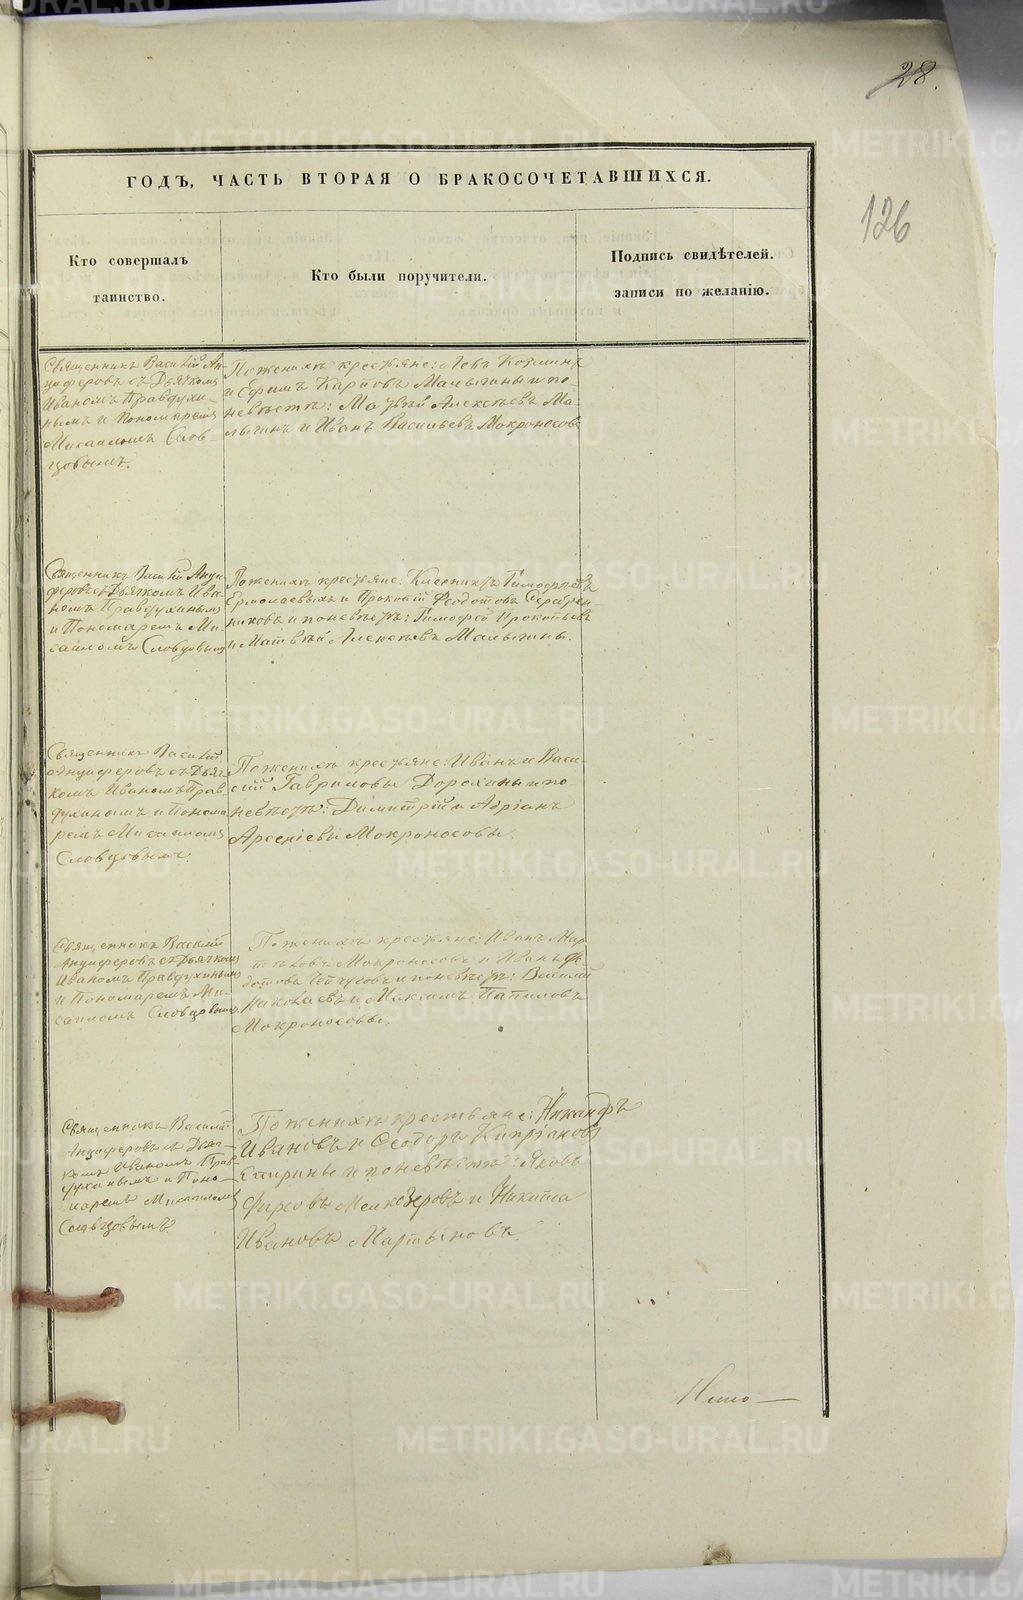 28.
126
ГОДЪ, ЧАСТЬ ВТОРАЯ О БРАКОСОЧЕТАВШИХСЯ.
Кто совершалъ
таинство.
Кто были поручители.
Подпись свидѣтелей.
записи по желанію.
Священникъ Василій Ан-
циферовъ съ Дьячкомъ
Иваномъ Правдухи-
нымъ и Пономаремъ
Михаиломъ Слов-
цовымъ.
По женихѣ крестьяне: Левъ Козминъ
и Ефимъ Карповъ Малыгины и по
невѣстѣ: Матвѣй Алексѣевъ Ма-
лыгинъ и Иванъ Васильевъ Мокроносовъ
Священникъ Василій Анци-
феровъ съ Дьячкомъ Ива-
номъ Правдухинымъ
и Пономаремъ Ми-
хаиломъ Словцовымъ
По женихѣ крестьяне: Тимофѣевъ
Ермолаевыхъ и Прокопій Феодотовъ Серебрен-
никовъ и по невѣстѣ: Тимофей Прокопьевъ
и Матвѣй Алексѣевъ Малыгины.
Священникъ Василій
Анциферовъ съ Дьяч-
комъ Иваномъ Прав-
духинымъ и Понома-
ремъ Михаиломъ
Словцовымъ.
По женихѣ крестьяне: Иванъ и Васи-
лій Гавриловы Дорохины и по
невѣстѣ: Димитрій и Адріанъ
Арсеніевы Мокроносовы.
Священникъ Василій
Анциферовъ съ Дьячкомъ
Иваномъ Правдухинымъ
и Пономаремъ Ми-
хаиломъ Словцовымъ
По женихѣ крестьяне: Иванъ
Мокроносовъ и Иванъ Фе-
дотовъ и по невѣстѣ: Василій
Николаевъ и Максимъ
Мокроносовы.
Священникъ Василій
Анциферовъ съ Дьяч-
комъ Иваномъ Прав-
духинымъ и Поно-
маремъ Михаиломъ
Словцовымъ
По женихѣ крестьяне: Никандръ
Ивановъ и Феодоръ Кипріановъ
Спирины и по невѣстѣ: Яковъ
Фирсовъ Мелкозеровъ и Никита
Ивановъ Мартыновъ.
METRIKI.GASO-URAL.RU